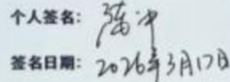 个人签名：
签名日期：2026年3月17日